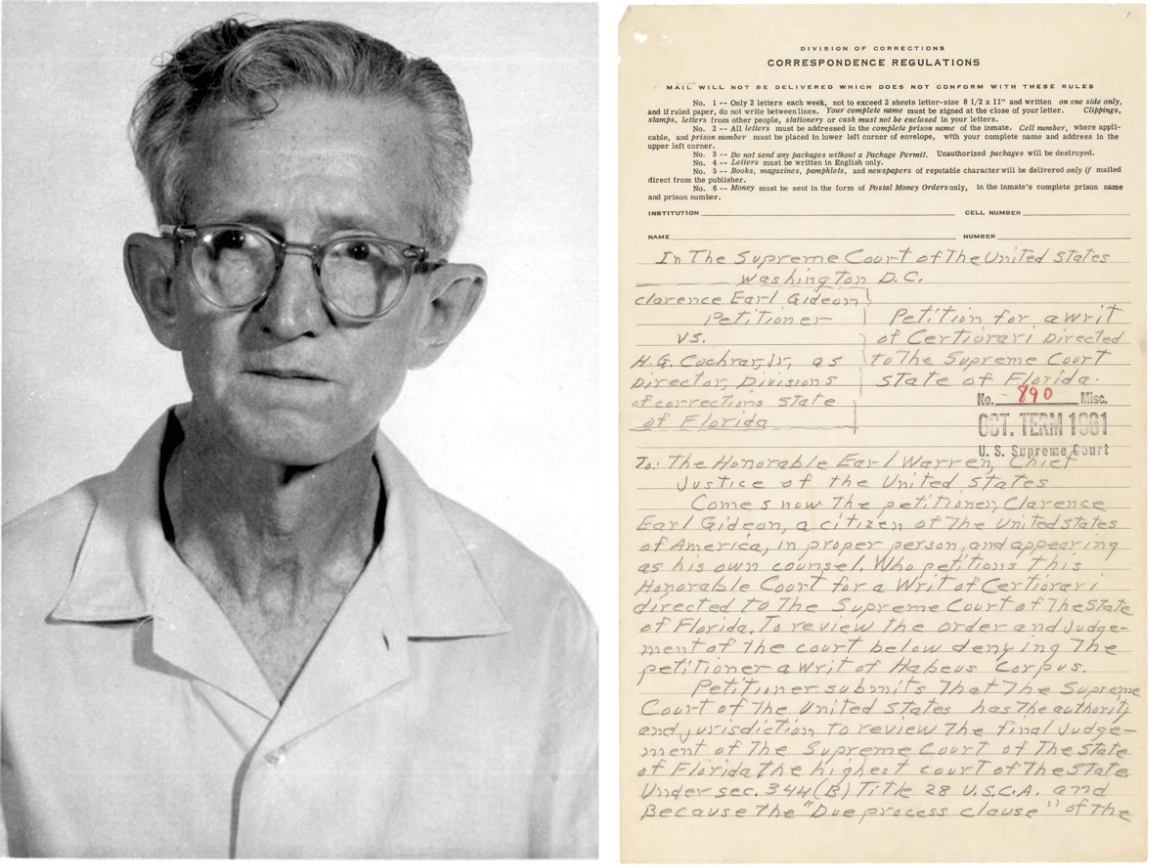 1
DIVISION OF CORRECTIONS
CORRESPONDENCE REGULATIONS
MAIL WILL NOT BE DELIVERED WHICH DOES NOT CONFORM WITH THESE RULES
No. 1 -- Only 2 letters each week, not to exceed 2 sheets letter-size 8 1/2 x 11" and written on one side only,
and if ruled paper, do not write between lines. Your complete name must be signed at the close of your letter. Clippings,
stamps, letters from other people, stationery or cash must not be enclosed in your letters.
No. 2 -- All letters must be addressed in the complete prison name of the inmate. Cell number, where appli-
cable, and prison number must be placed in lower left corner of envelope, with your complete name and address in the
upper left corner.
No. 3 -- Do not send any packages without a Package Permit. Unauthorized packages will be destroyed.
No. 4 -- Letters must be written in English only.
No. 5 -- Books, magazines, pamphlets, and newspapers of reputable character will be delivered only if mailed
direct from the publisher.
No. 6 -- Money must be sent in the form of Postal Money Orders only, in the inmate's complete prison name
and prison number.
INSTITUTION CELL NUMBER
NAME NUMBER
In The Supreme Court of The United States
Washington D.C.
Clarence Earl Gideon
Petitioner
vs.
H.G. Cochran, Jr, as
Director, Divisions
of corrections State
of Florida
Petition for a writ
of Certiorari Directed
to The Supreme Court
State of Florida.
No. 890 Misc.
OCT. TERM 1961
U. S. Supreme Court
To: The Honorable Earl Warren, Chief
Justice of the United States
Comes now The petitioner, Clarence
Earl Gideon, a citizen of The United states
of America, in proper person, and appearing
as his own counsel. Who petitions this
Honorable Court for a Writ of Certiorari
directed to The Supreme Court of The State
of Florida. To review the order and Judge-
ment of the court below denying The
petitioner a writ of Habeus Corpus.
Petitioner submits That The Supreme
Court of The United States has The authority
and jurisdiction to review the final Judge-
ment of The Supreme Court of The State
of Florida the highest court of The State
Under sec. 344(B) Title 28 U.S.C.A. and
Because the "Due process clause" of the